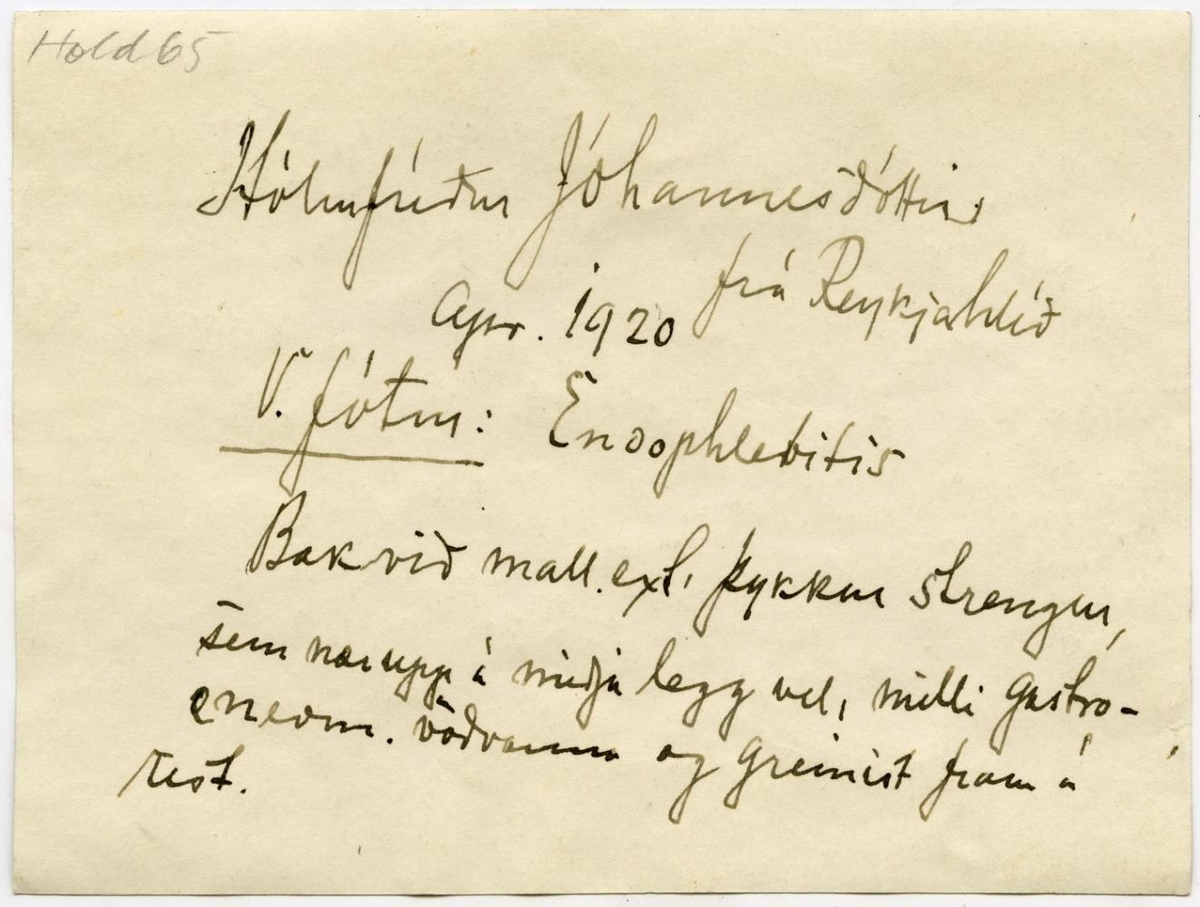 Hold 65
Hólmfríður Jóhannesdóttir
frá Reykjahlíð
Apr. 1920
V. fótur: Endophlebitis
Bak við mall. ext. þykkur strengur,
sem nær upp á miðja legg vel, milli gastro-
cneom. vöðvanna og greinist fram á
rist.